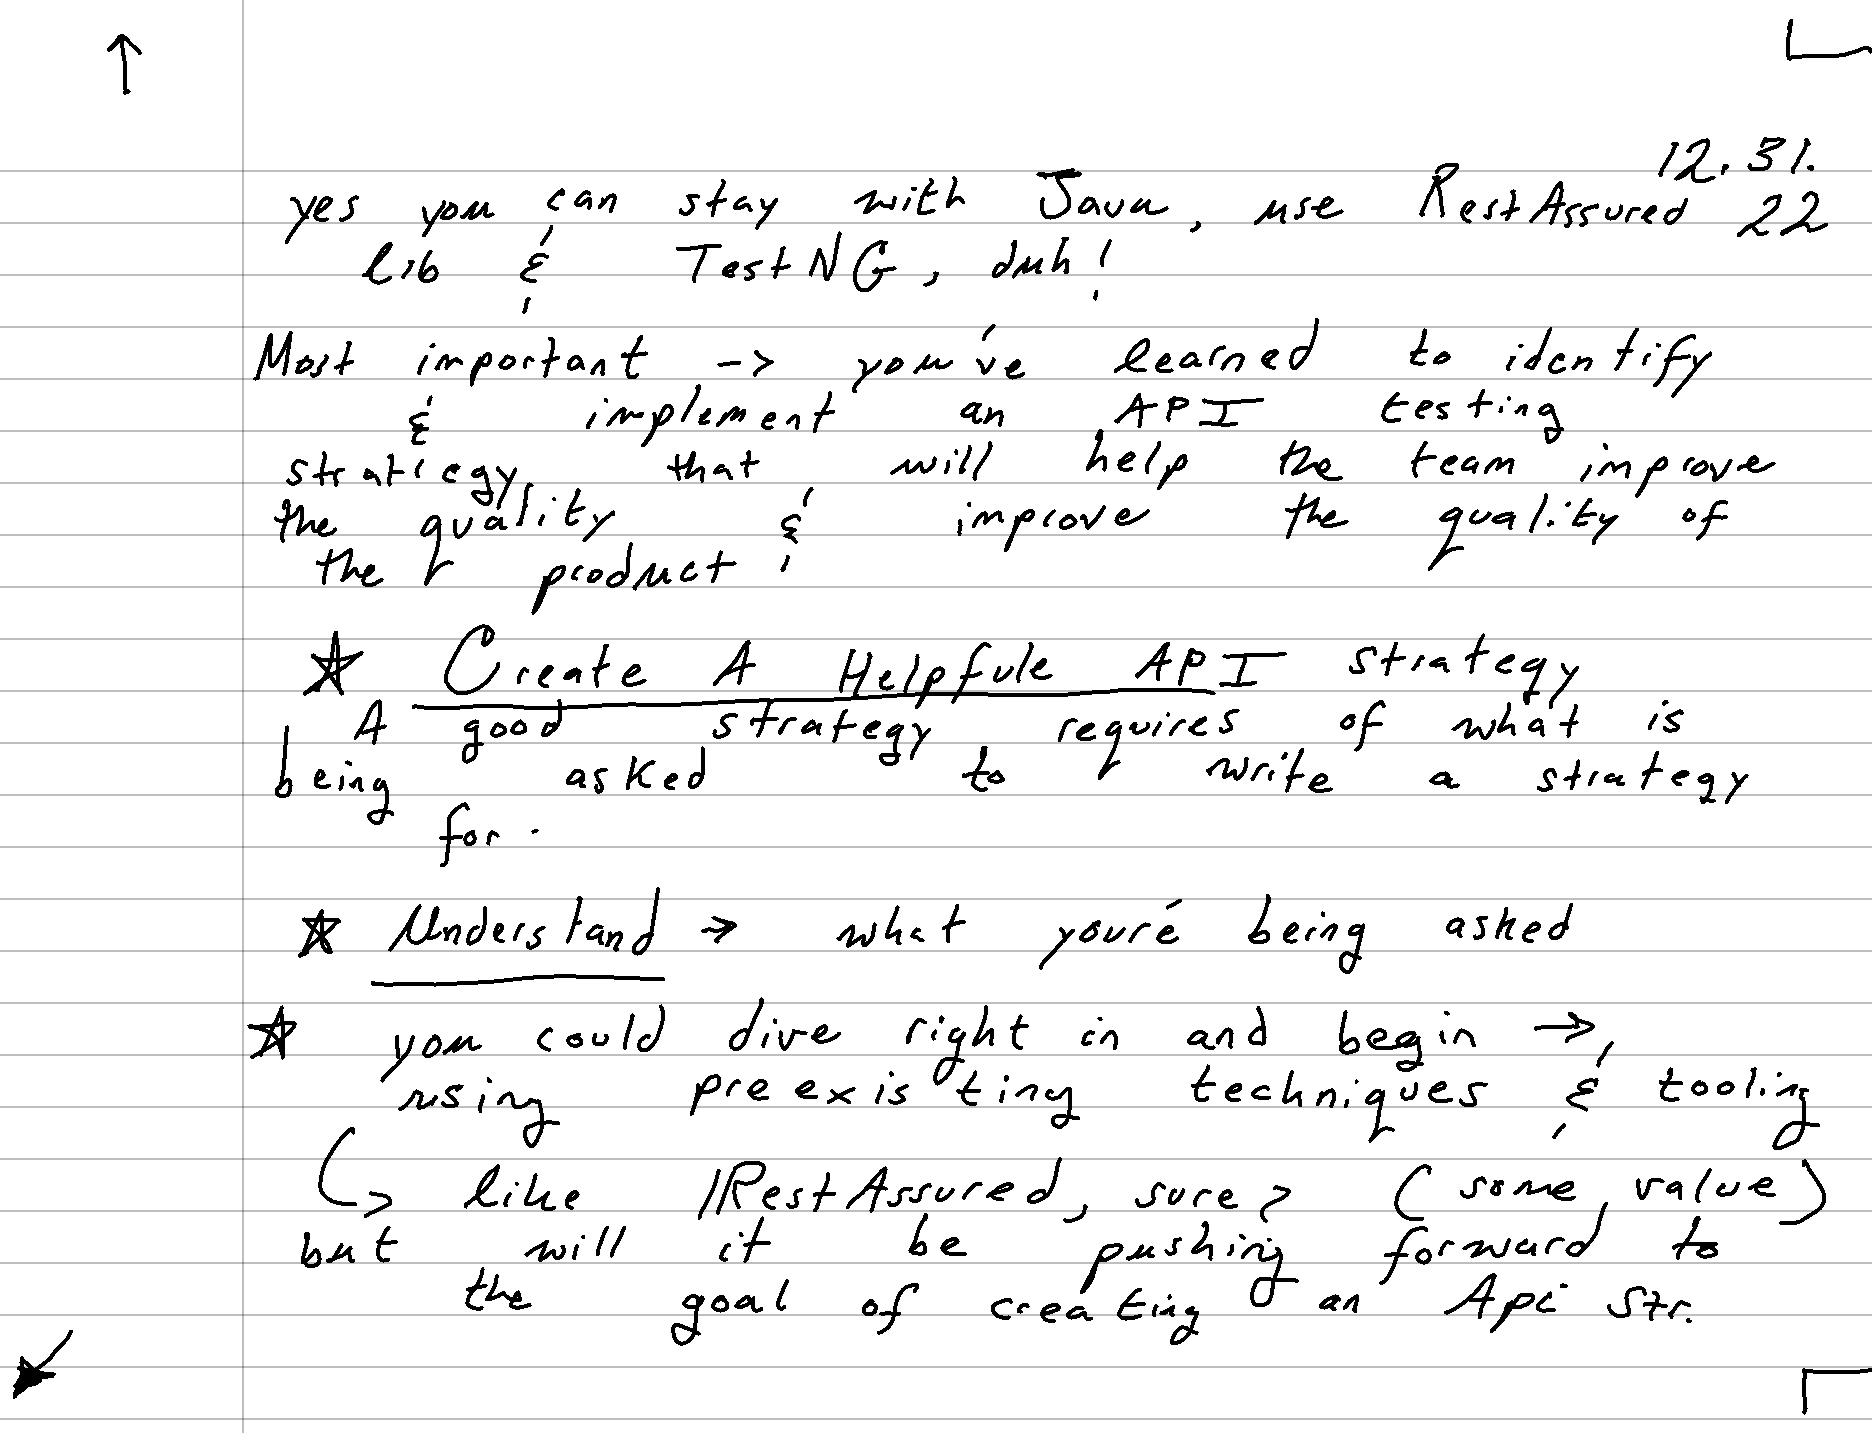 12.31.
yes you can stay with Java, use RestAssured 22
lib & TestNG, duh!
Most important -> you've learned to identify
& implement an API testing
stratiegy that will help the team improve
the quality & improve the quality of
the product
☆ Create A Helpfule API strategy
A good strategy requires of what is
being asked to write a strategy
for.
☆ Understand → what you're being asked
☆ you could dive right in and begin →
using preexisting techniques & tooling
↳ like RestAssured, sure? (some value)
but will it be pushing forward to
the goal of creating an Api Str.